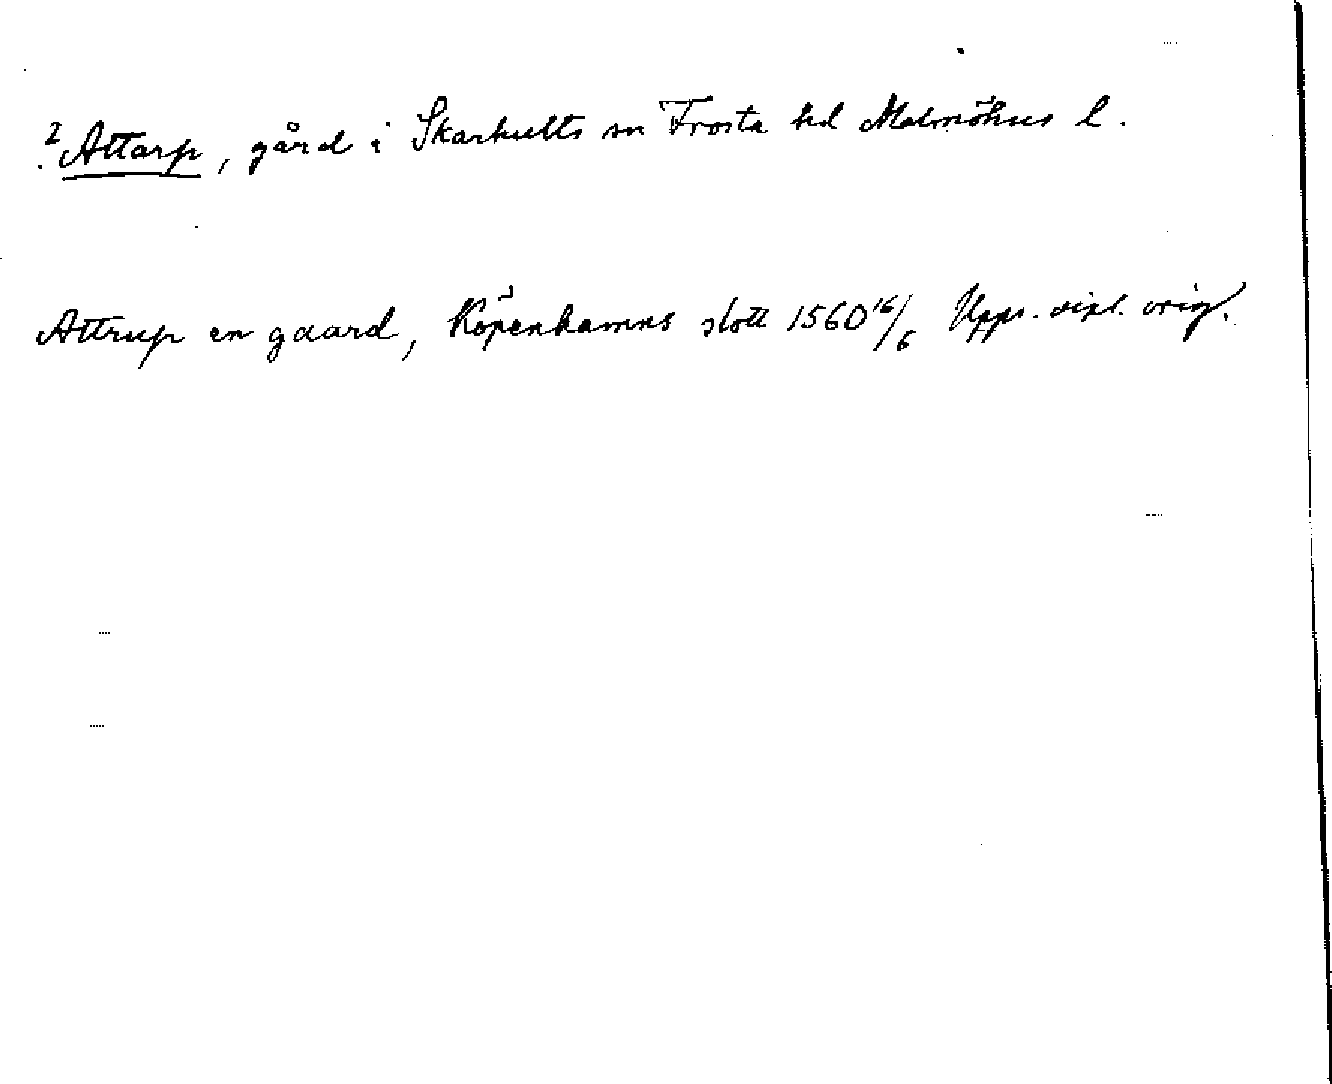 ? Attarp, gård i Skarhults sn Frosta hd Malmöhus l.
Attrup en gaard, Köpenhamns slott 1560 16/6 Upps. dipl. orig.